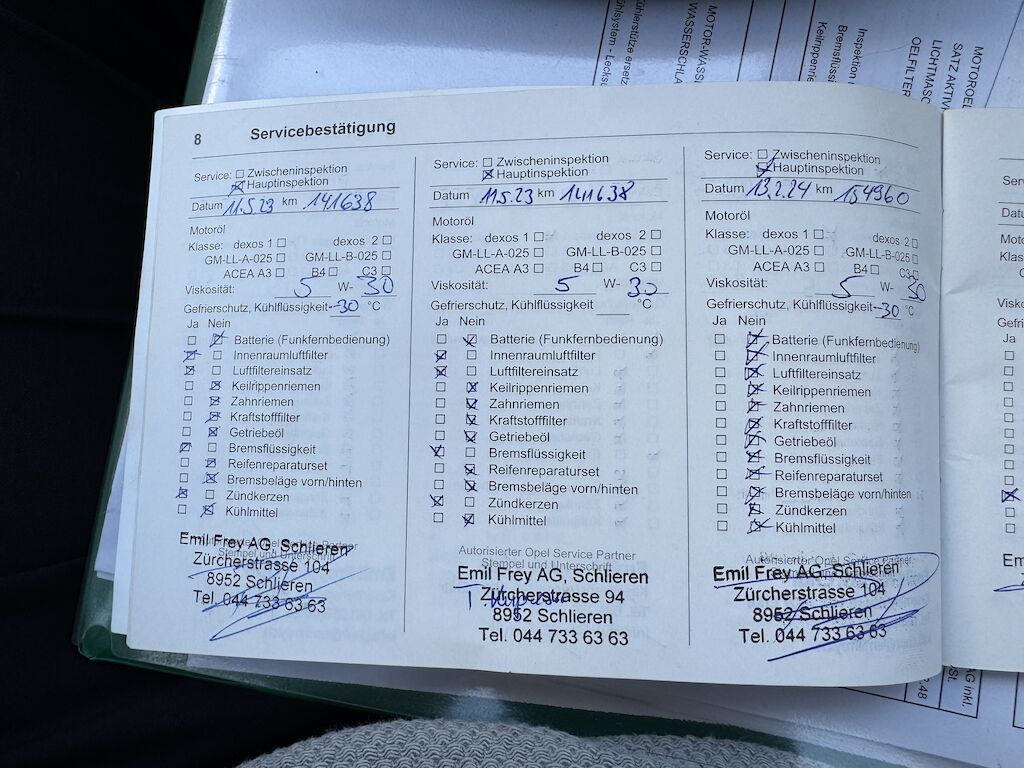 8 Servicebestätigung
Service: ☐ Zwischeninspektion
☒ Hauptinspektion
Datum 11.5.23 km 141638
Motoröl
Klasse: dexos 1 ☐ dexos 2 ☐
GM-LL-A-025 ☐ GM-LL-B-025 ☐
ACEA A3 ☐ B4 ☐ C3 ☐
Viskosität: 5 W- 30
Gefrierschutz, Kühlflüssigkeit -30 °C
Ja Nein
☐ ☒ Batterie (Funkfernbedienung)
☒ ☐ Innenraumluftfilter
☒ ☐ Luftfiltereinsatz
☐ ☒ Keilrippenriemen
☐ ☒ Zahnriemen
☐ ☒ Kraftstofffilter
☐ ☒ Getriebeöl
☒ ☐ Bremsflüssigkeit
☐ ☒ Reifenreparaturset
☐ ☒ Bremsbeläge vorn/hinten
☒ ☐ Zündkerzen
☐ ☒ Kühlmittel
Autorisierter Opel Service Partner
Stempel und Unterschrift
Emil Frey AG, Schlieren
Zürcherstrasse 104
8952 Schlieren
Tel. 044 733 63 63
Service: ☐ Zwischeninspektion
☒ Hauptinspektion
Datum 11.5.23 km 141638
Motoröl
Klasse: dexos 1 ☐ dexos 2 ☐
GM-LL-A-025 ☐ GM-LL-B-025 ☐
ACEA A3 ☐ B4 ☐ C3 ☐
Viskosität: 5 W- 30
Gefrierschutz, Kühlflüssigkeit °C
Ja Nein
☐ ☒ Batterie (Funkfernbedienung)
☒ ☐ Innenraumluftfilter
☒ ☐ Luftfiltereinsatz
☐ ☒ Keilrippenriemen
☐ ☒ Zahnriemen
☐ ☒ Kraftstofffilter
☐ ☒ Getriebeöl
☒ ☐ Bremsflüssigkeit
☐ ☒ Reifenreparaturset
☐ ☒ Bremsbeläge vorn/hinten
☒ ☐ Zündkerzen
☐ ☒ Kühlmittel
Autorisierter Opel Service Partner
Stempel und Unterschrift
Emil Frey AG, Schlieren
Zürcherstrasse 94
8952 Schlieren
Tel. 044 733 63 63
Service: ☐ Zwischeninspektion
☒ Hauptinspektion
Datum 13.2.24 km 154960
Motoröl
Klasse: dexos 1 ☐ dexos 2 ☐
GM-LL-A-025 ☐ GM-LL-B-025 ☐
ACEA A3 ☐ B4 ☐ C3 ☐
Viskosität: 5 W- 30
Gefrierschutz, Kühlflüssigkeit -30 °C
Ja Nein
☐ ☒ Batterie (Funkfernbedienung)
☐ ☒ Innenraumluftfilter
☐ ☒ Luftfiltereinsatz
☐ ☒ Keilrippenriemen
☐ ☒ Zahnriemen
☐ ☒ Kraftstofffilter
☐ ☒ Getriebeöl
☐ ☒ Bremsflüssigkeit
☐ ☒ Reifenreparaturset
☐ ☒ Bremsbeläge vorn/hinten
☐ ☒ Zündkerzen
☐ ☒ Kühlmittel
Autorisierter Opel Service Partner
Stempel und Unterschrift
Emil Frey AG, Schlieren
Zürcherstrasse 104
8952 Schlieren
Tel. 044 733 63 63